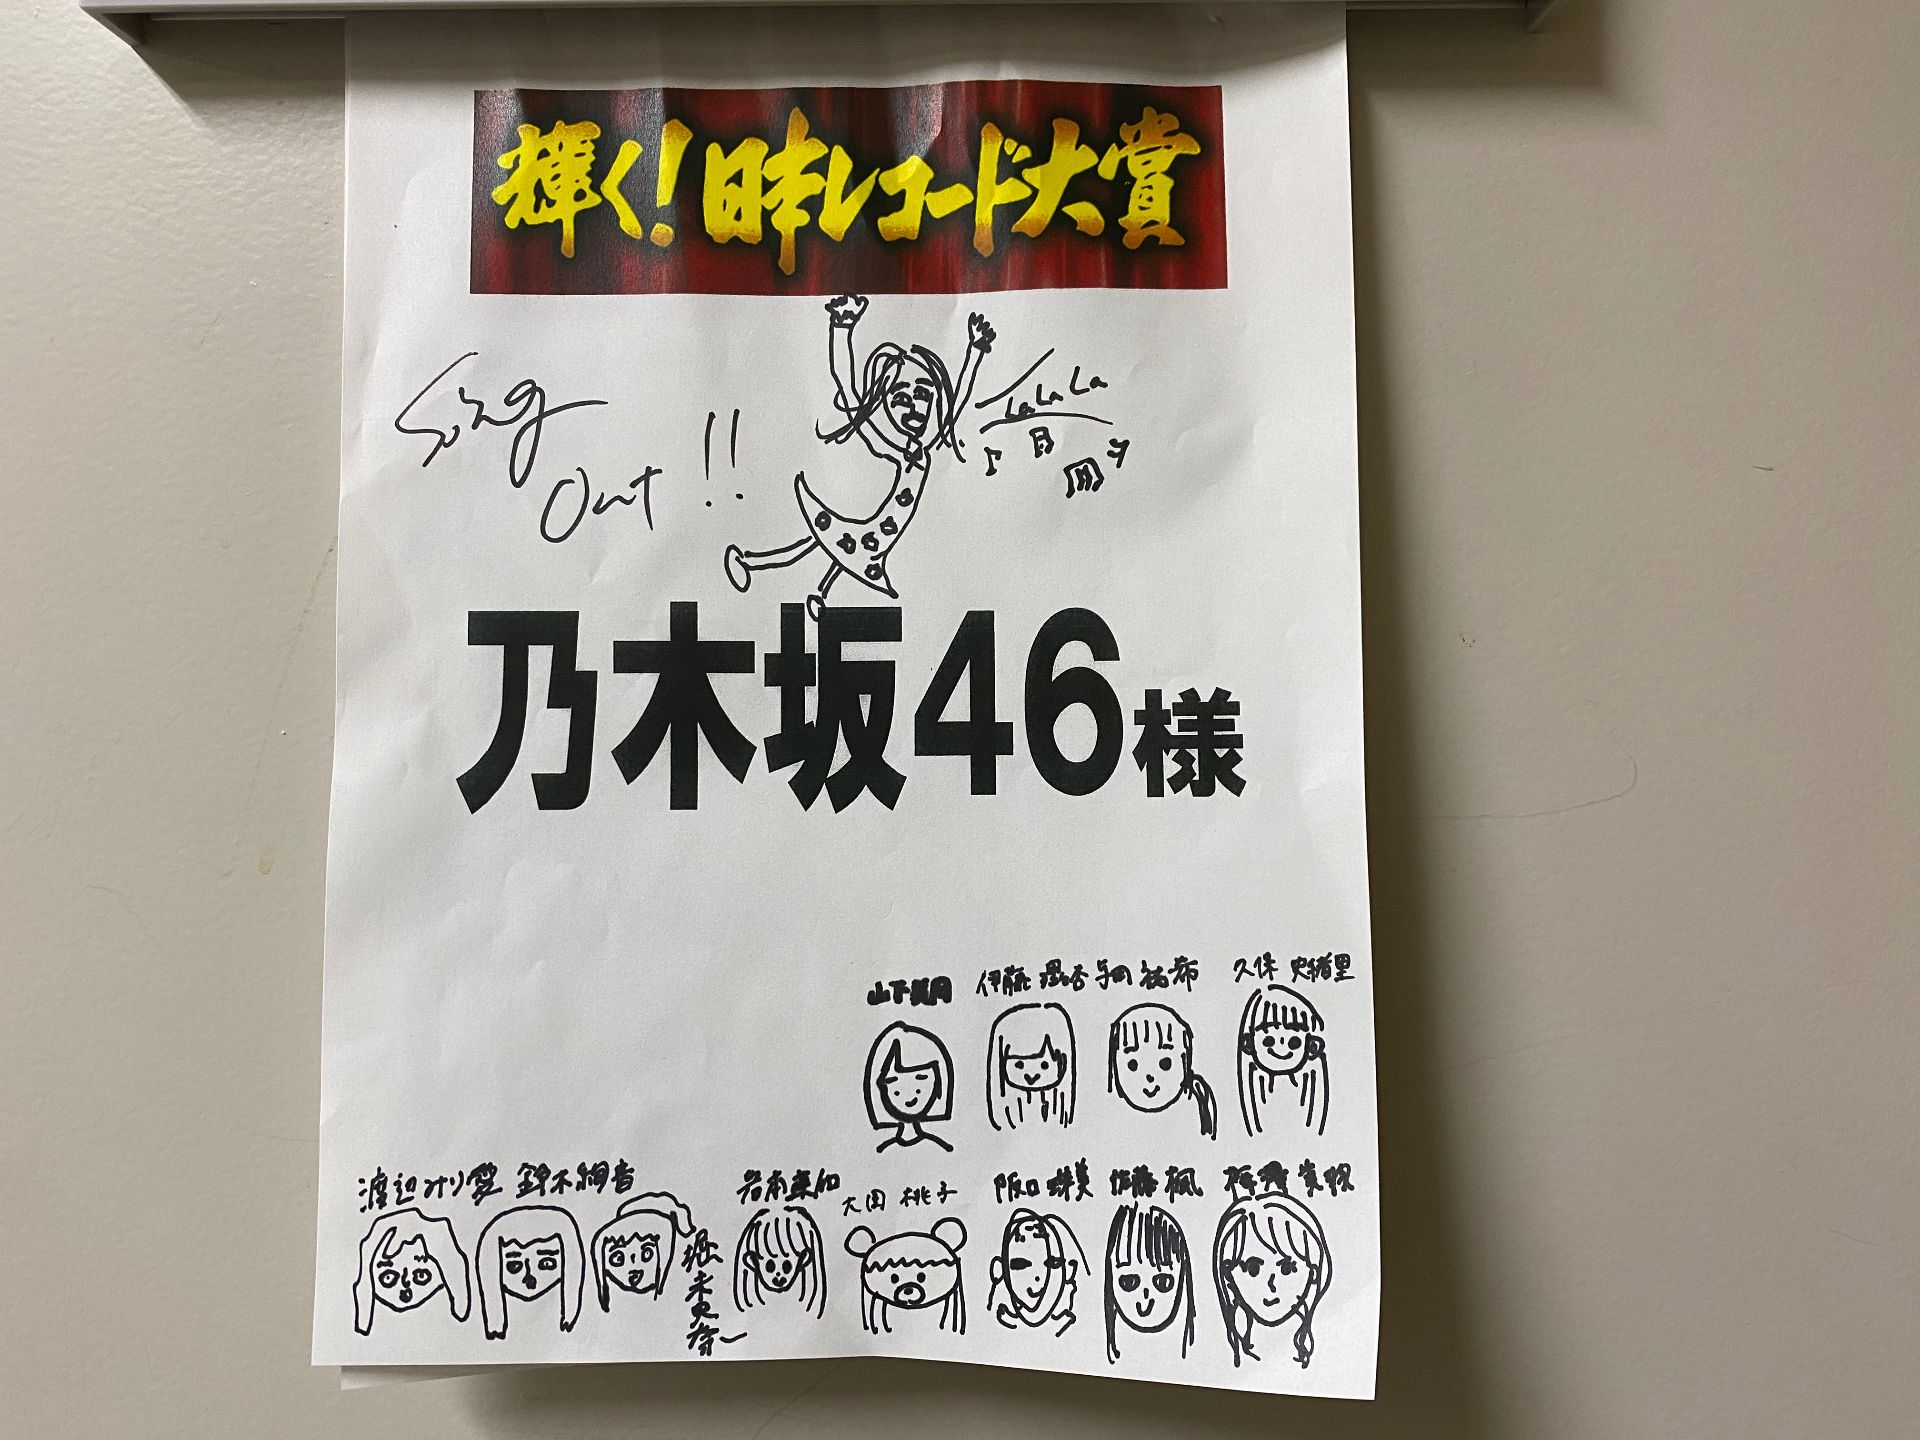 輝く!日本レコード大賞
Sing
Out !!
LaLaLa
乃木坂46様
山下美月 伊藤理々杏 与田祐希 久保 史緒里
渡辺みり愛 鈴木絢音 岩本蓮加 大園 桃子 阪口珠美 佐藤楓 梅澤美波
堀未央奈